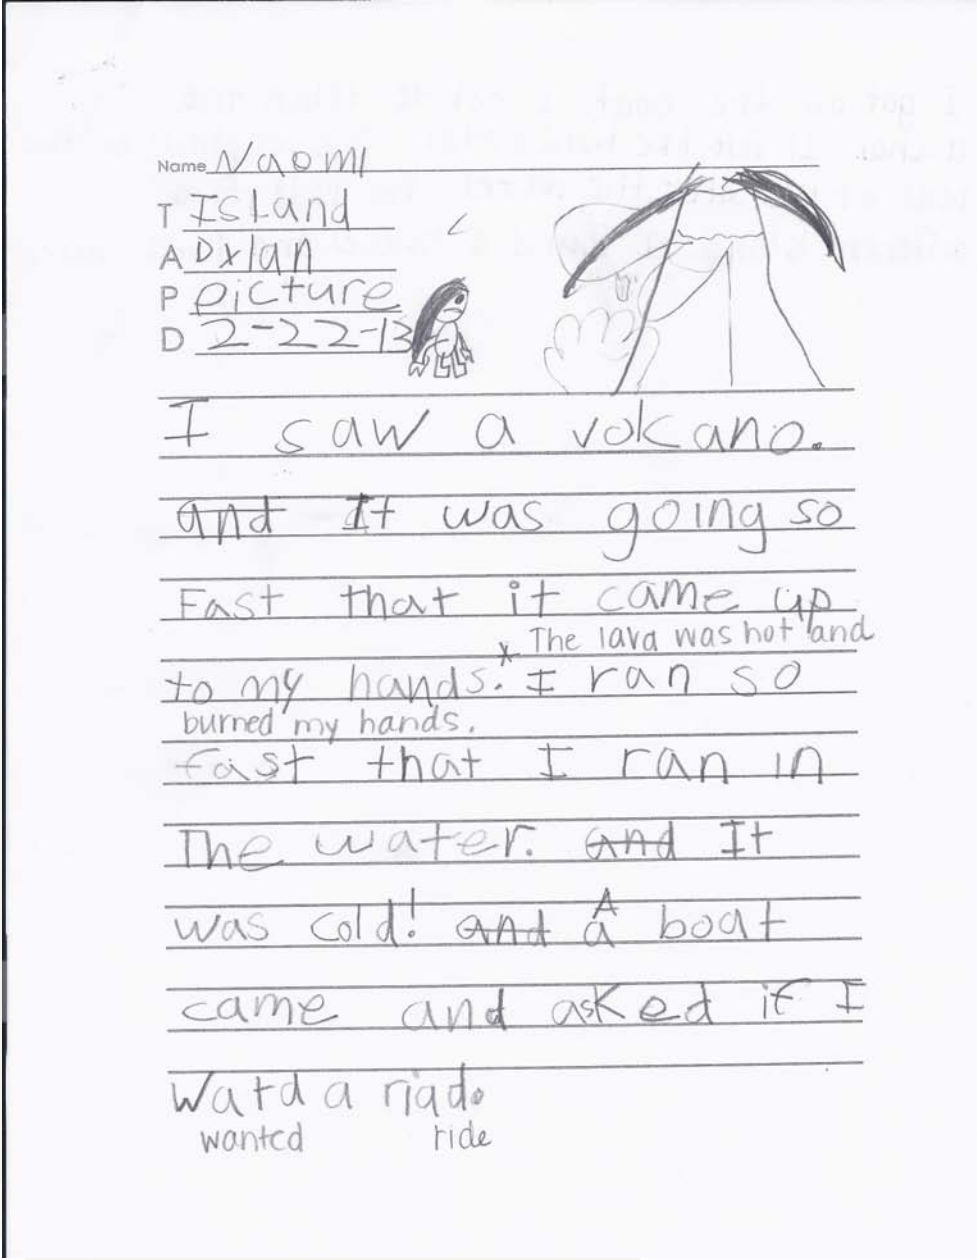 Name Naomi
T Island
A Dylan
P picture
D 2-22-13
I saw a volcano.
and It was going so
Fast that it came up
* The lava was hot and
to my hands. I ran so
burned my hands.
fast that I ran in
The water. and It
was cold! and A
a boat
came and asked if I
Watd a riad.
wanted ride